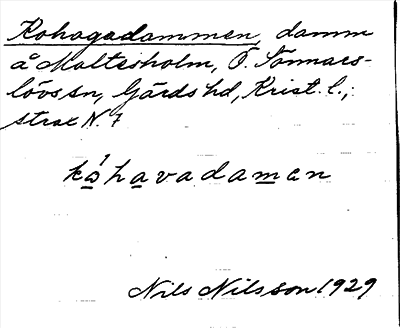 Kohagadammen, damm
å Maltesholm, Ö. Sönnars-
lövs sn, Gärds hd, Krist. l.;
strax N. f
kåhavadaman
Nils Nilsson 1929